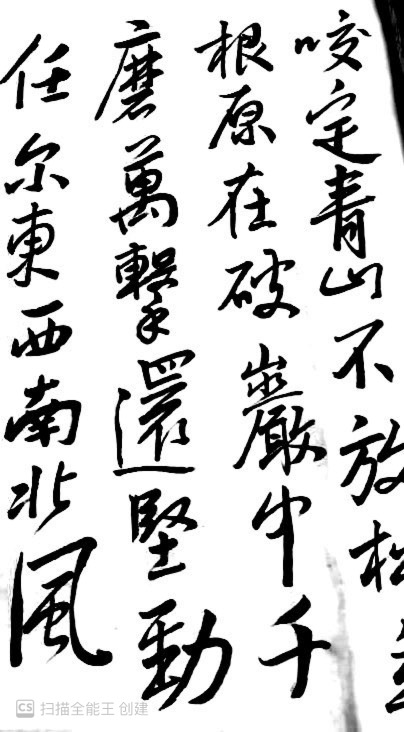 咬定青山不放松立
根原在破巖中千
磨萬擊還堅勁
任尔東西南北風
CS 扫描全能王 创建